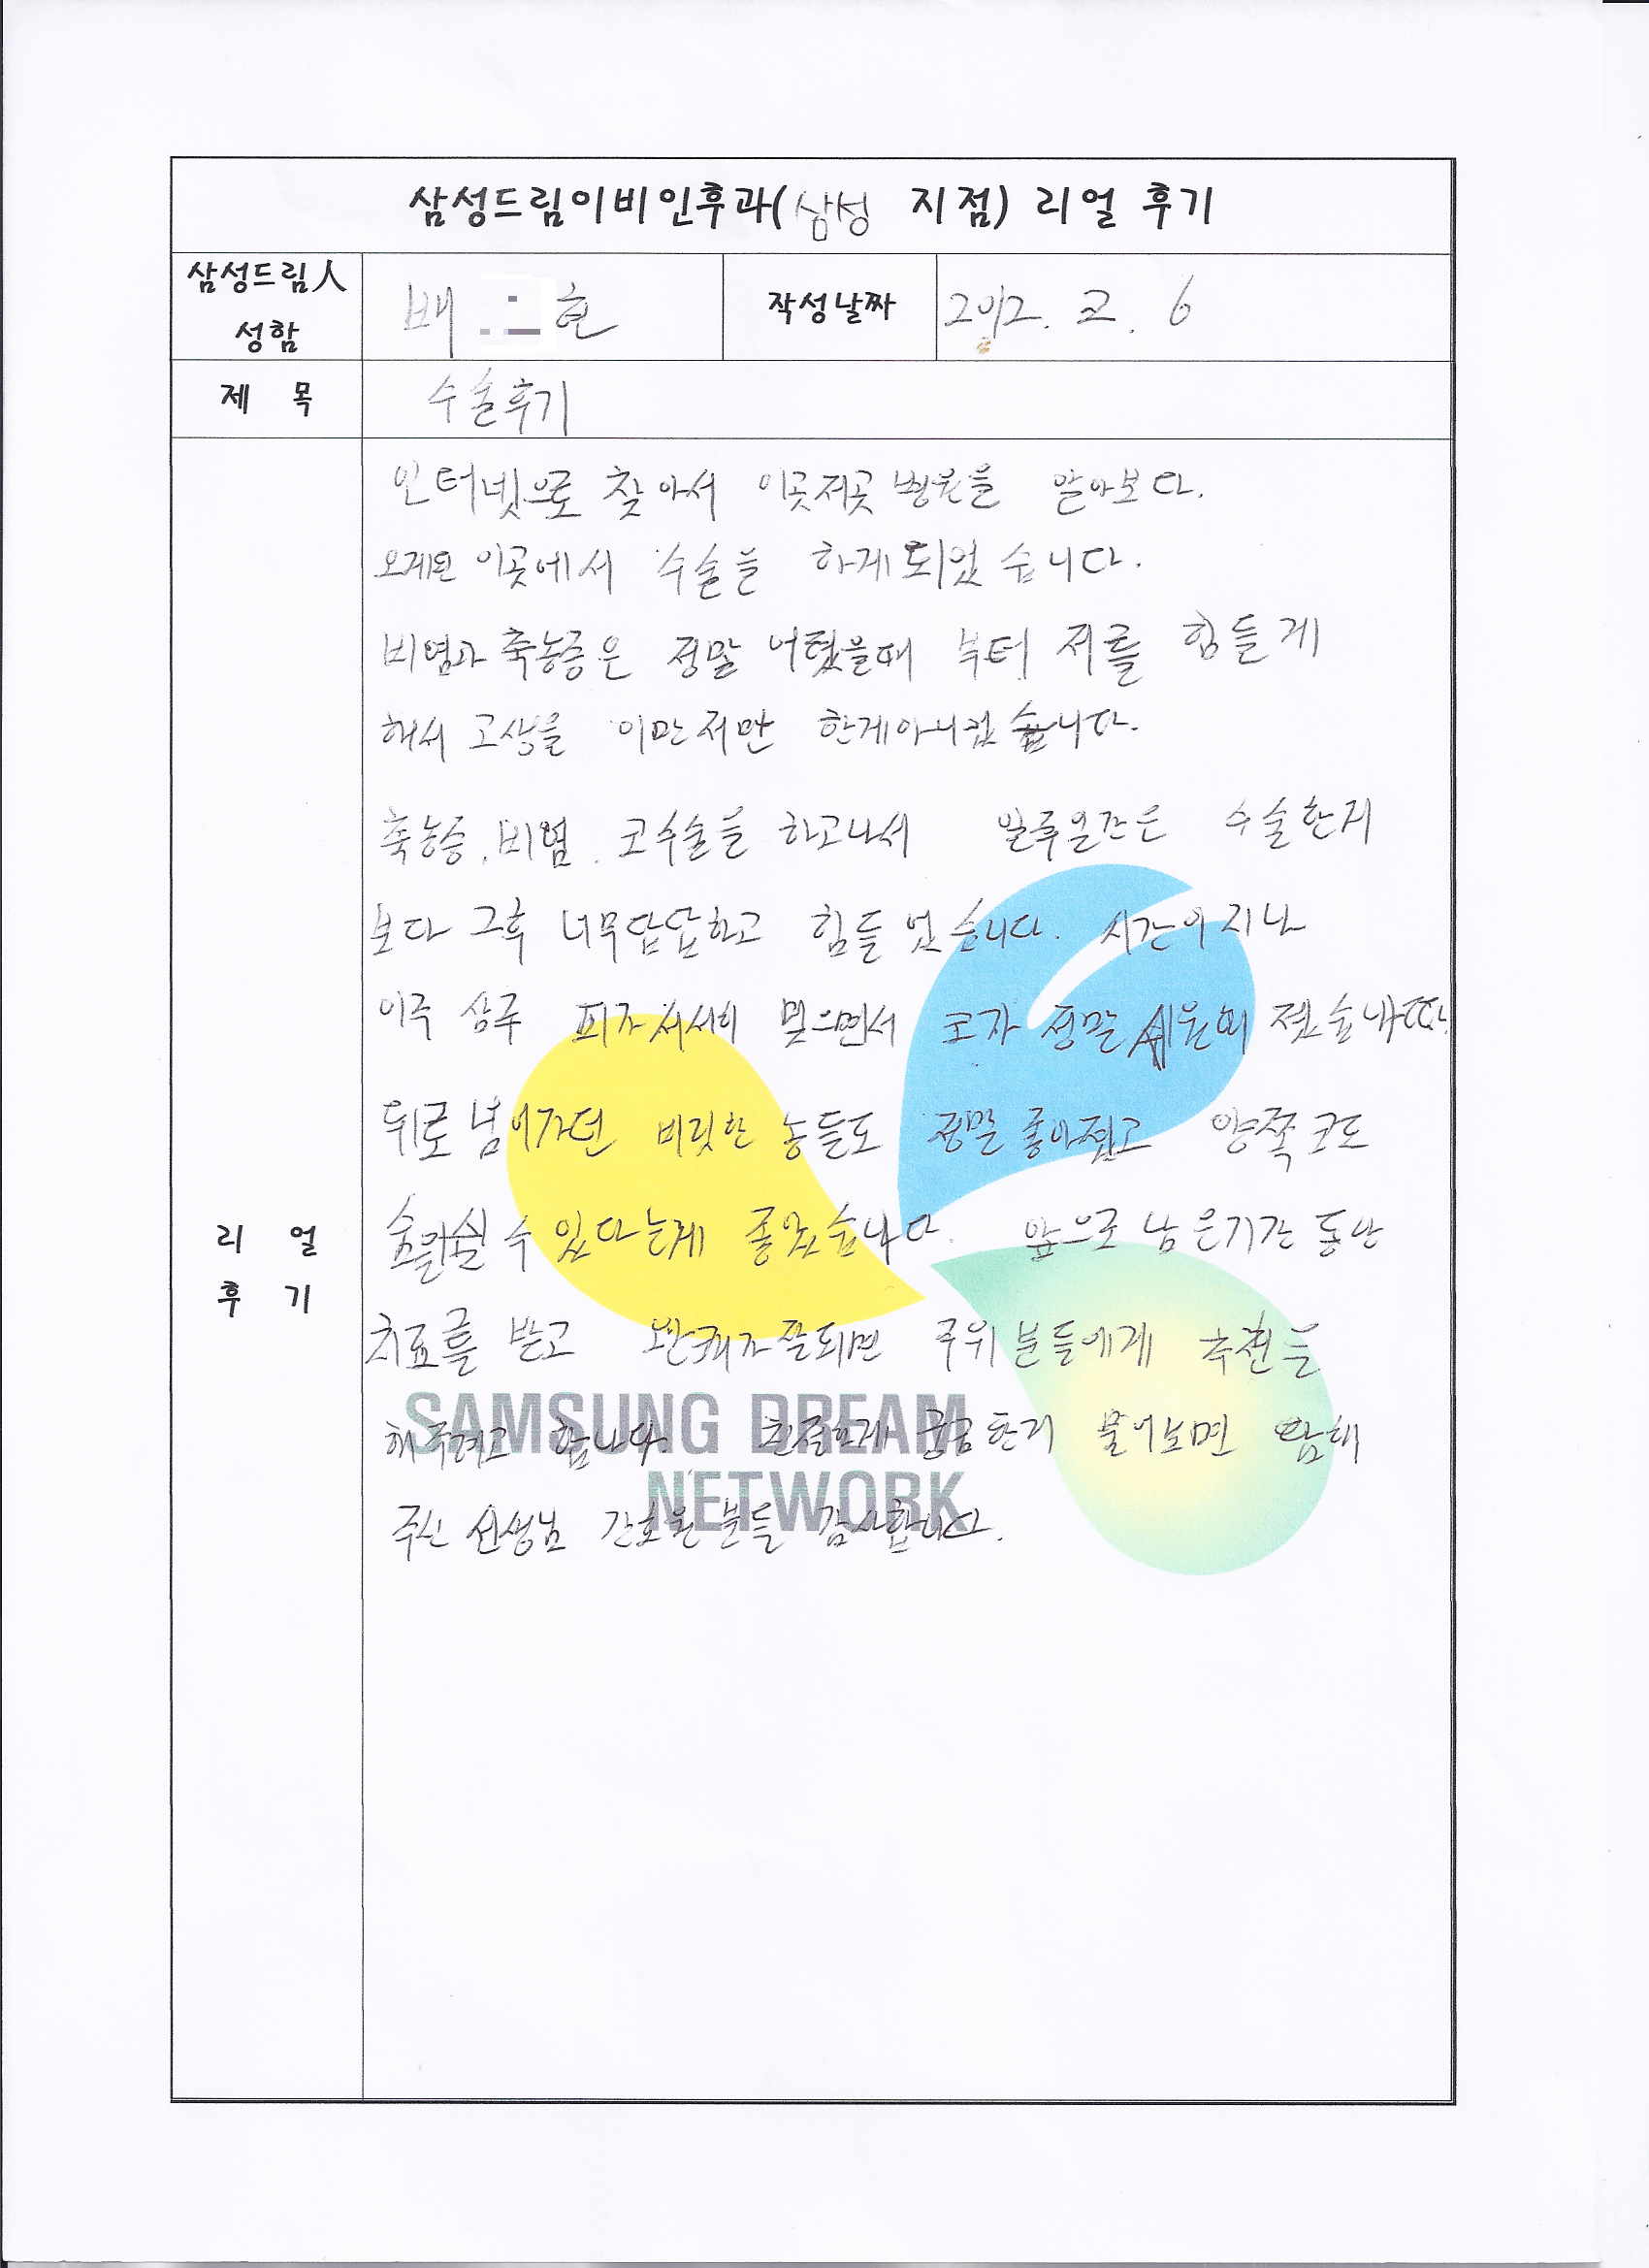 삼성드림이비인후과(삼성 지점) 리얼 후기
삼성드림人
성함
배 현
작성날짜
2012. 2. 6
제 목
수술후기
인터넷으로 찾아서 이곳저곳 병원을 알아보다.
오게된 이곳에서 수술을 하게되었습니다.
비염과 축농증은 정말 어렸을때 부터 저를 힘들게
해서 고생을 이만저만 한게아니었습니다.
축농증, 비염, 코수술을 하고나서 일주일간은 수술한지
보다 그후 너무답답하고 힘들었습니다. 시간이 지나
이주 삼주 피가 서서히 멎으면서 코가 정말 시원해 졌습니다.
뒤로 넘어가던 비릿한 농들도 정말 좋아졌고 양쪽코도
숨을쉴 수 있다는게 좋았습니다. 앞으로 남은기간 동안
리 얼
후 기
치료를 받고 완쾌가 잘되면 주위 분들에게 추천을
SAMSUNG DREAM
해주려고 합니다. 친절하게 궁금한거 물어보면 답해
NETWORK
주신 선생님 간호원분들 감사합니다.